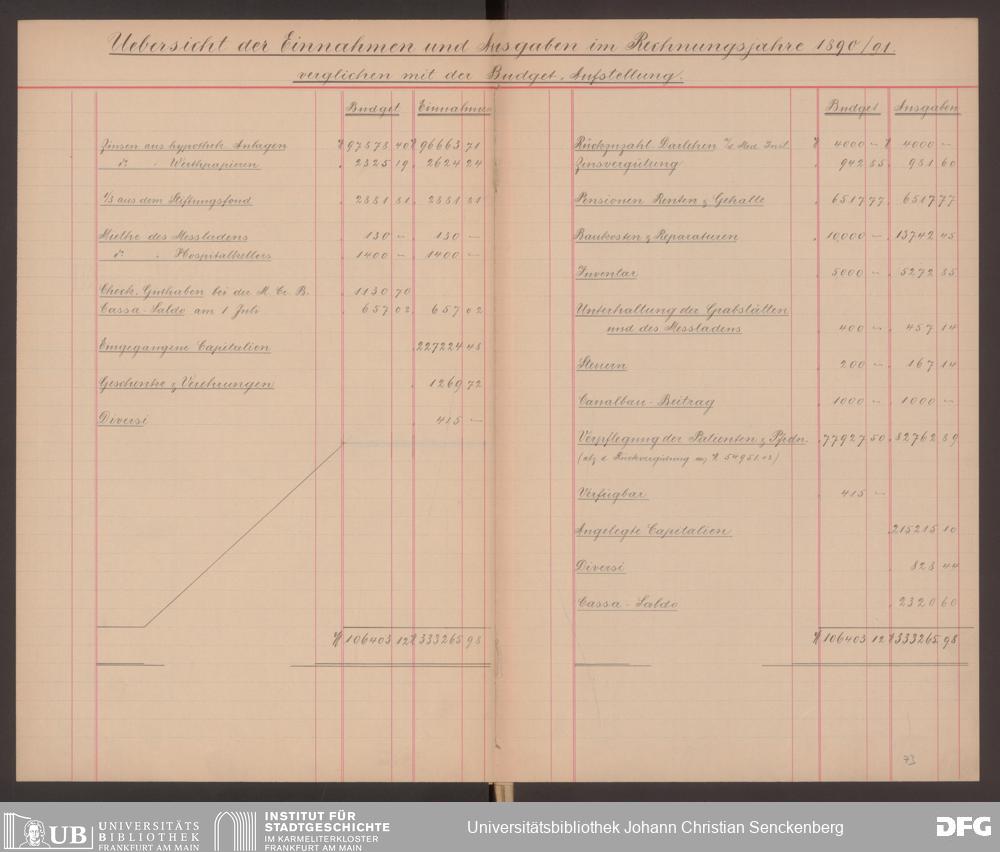 Uebersicht der Einnahmen und Ausgaben im Rechnungsjahre 1890/91.
verglichen mit der Budget-Aufstellung.
Budget Einnahmen
Zinsen aus hypothek. Anlagen ℳ 97878 40 ℳ 96663 71
do. " Werthpapieren " 2325 19 " 2624 24
1/3 aus dem Stiftungsfond " 2881 81 " 2881 81
Miethe des Messladens " 130 — " 130 —
do. " Hospitalkellers " 1400 — " 1400 —
Check-Guthaben bei der M. Cr. B. " 1130 70
Cassa-Saldo am 1 Juli " 657 02 " 657 02
Eingegangene Capitalien " 227224 48
Geschenke & Verehrungen " 1269 72
Diversi " 415 —
ℳ 106403 12 ℳ 333265 98
Budget Ausgaben
Rückzahl. Darlehen Inst. ℳ 4000 — ℳ 4000 —
Zinsvergütung " 942 85 " 981 60
Pensionen Renten & Gehalte " 6517 77 " 6517 77
Baukosten & Reparaturen " 10,000 — " 13742 45
Inventar " 5000 — " 5272 85
Unterhaltung der Grabstätten
und des Messladens " 400 — " 457 14
Steuern " 200 — " 167 14
Canalbau-Beitrag " 1000 — " 1000 —
Verpflegung der Patienten & Pfrdn. " 77927 50 " 82762 89
(abz d. Rückvergütung ℳ 54951.02)
Verfügbar " 415 —
Angelegte Capitalien " 215215 10
Diversi " 828 44
Cassa-Saldo " 2320 60
ℳ 106403 12 ℳ 333265 98
73
UB UNIVERSITÄTS
BIBLIOTHEK
FRANKFURT AM MAIN
INSTITUT FÜR
STADTGESCHICHTE
IM KARMELITERKLOSTER
FRANKFURT AM MAIN
Universitätsbibliothek Johann Christian Senckenberg
DFG